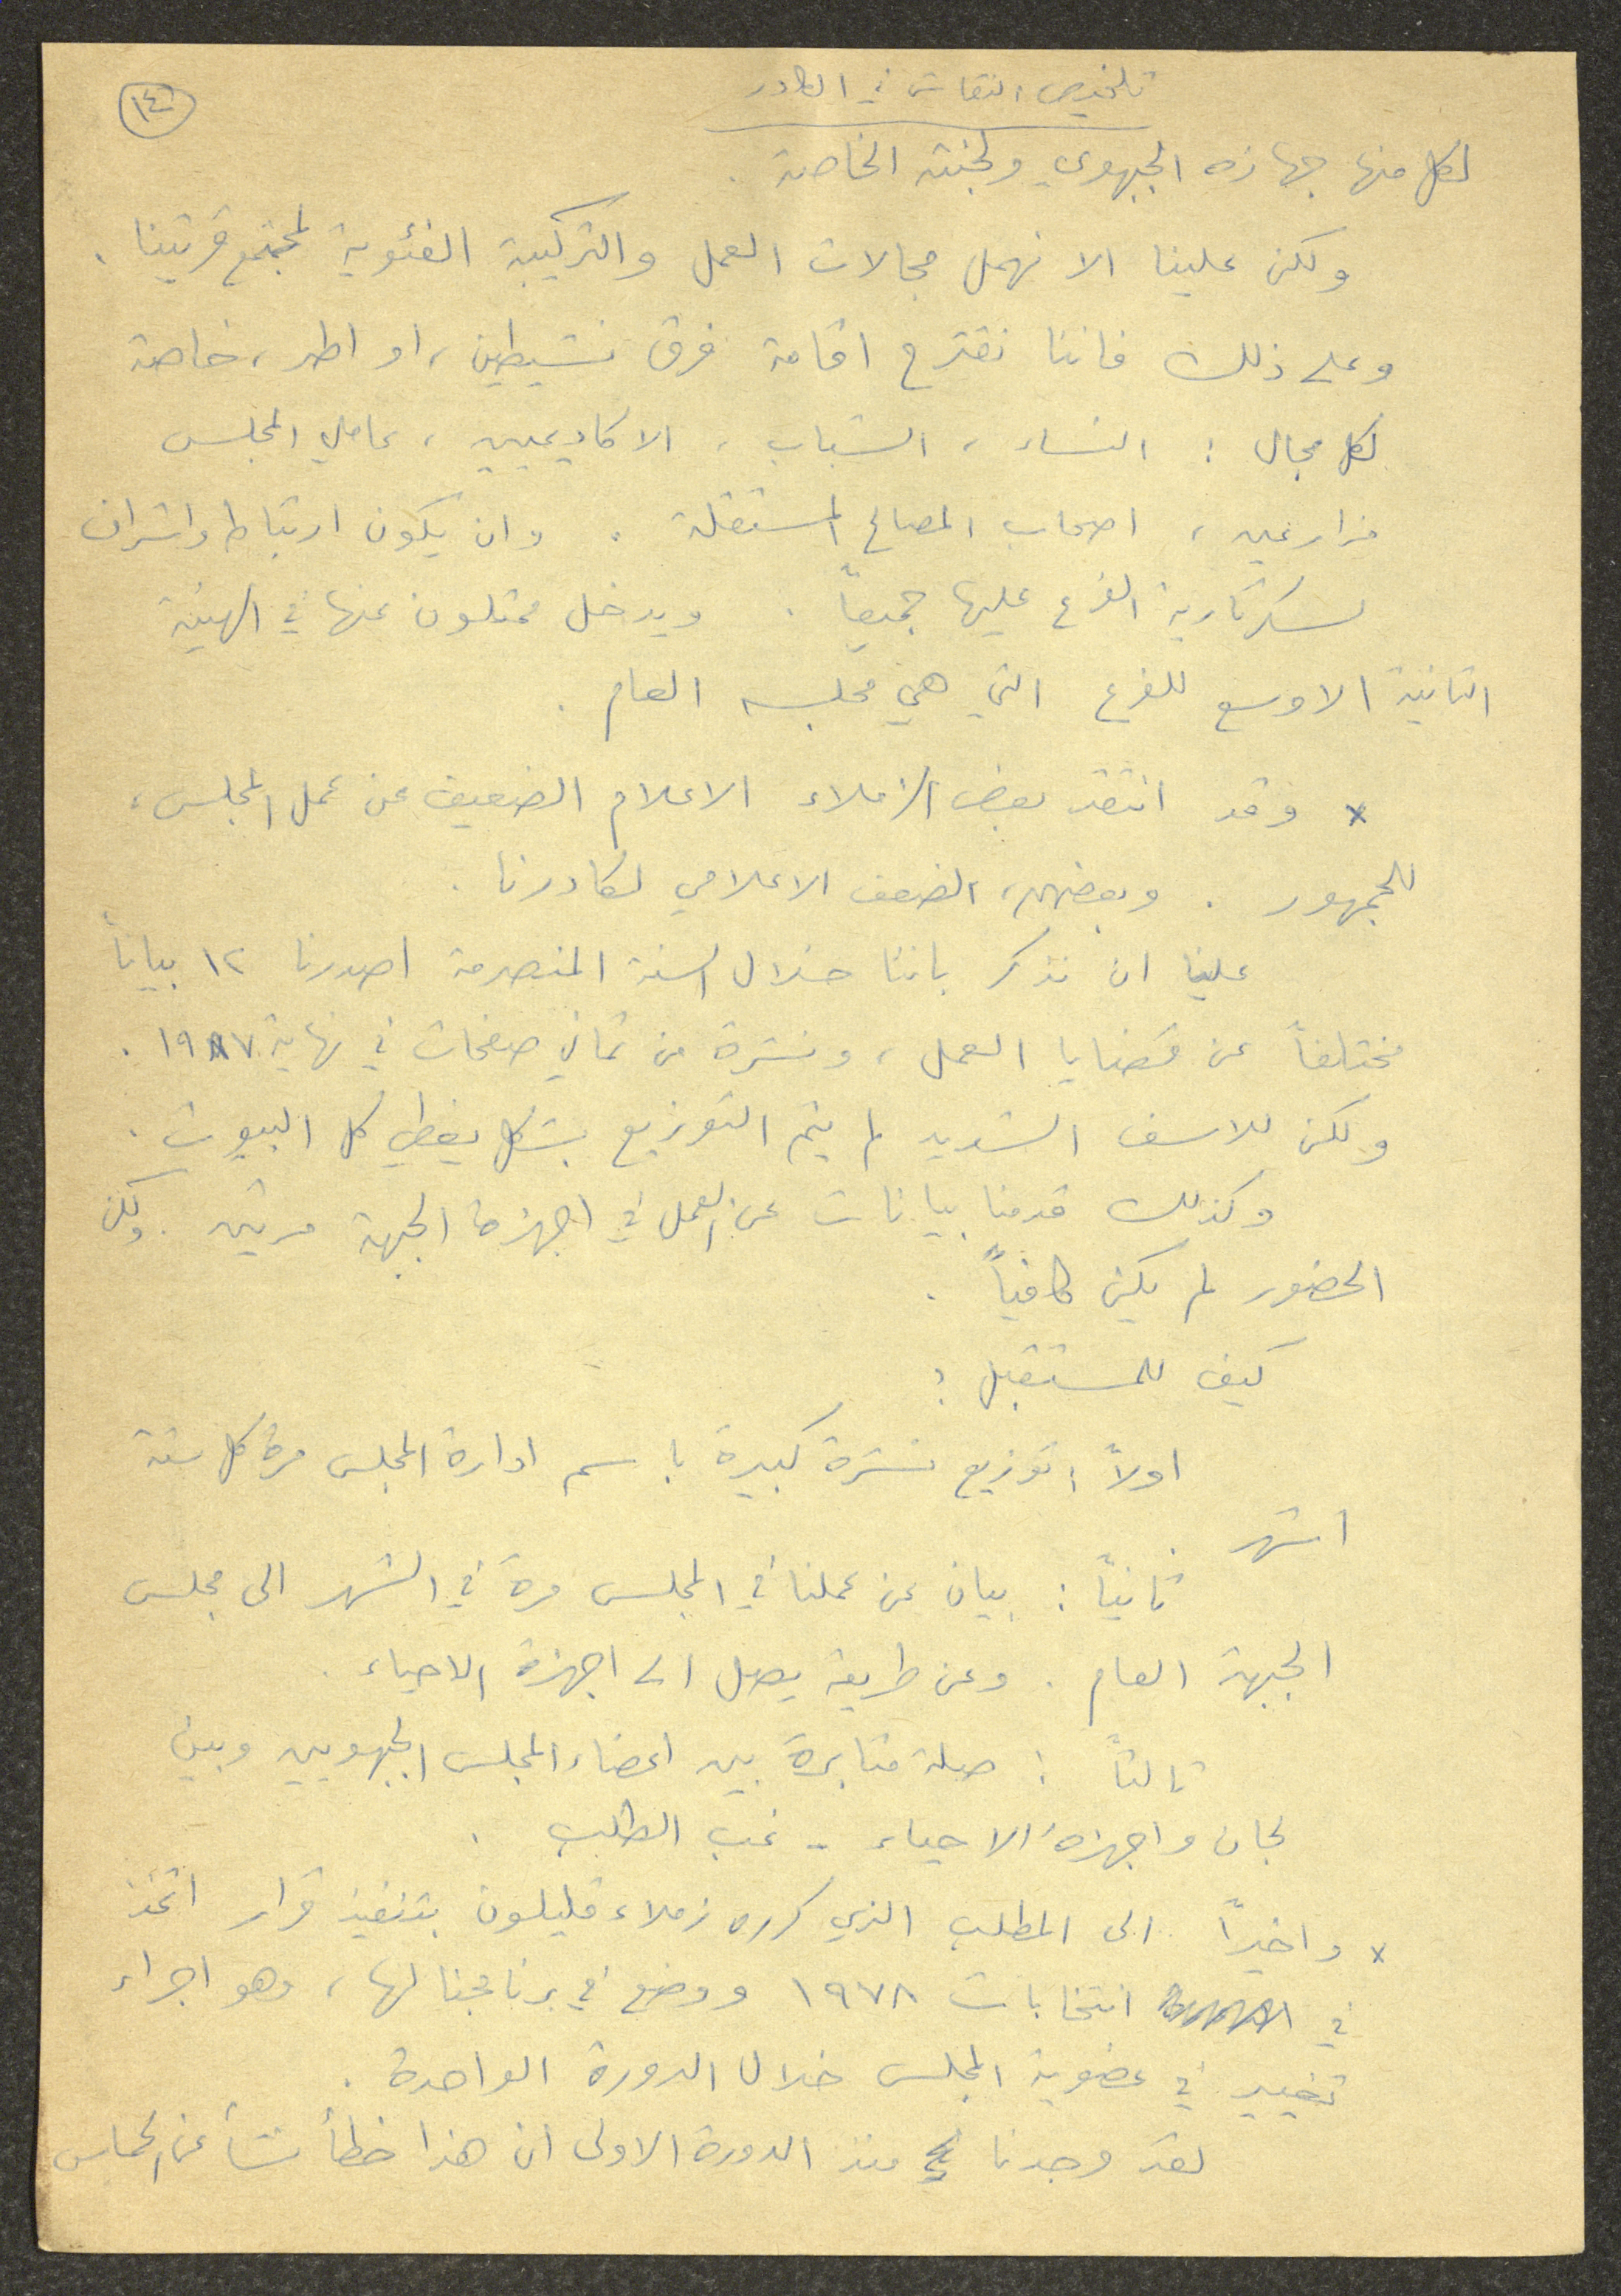 تلخيص النقاش في الكادر
١٤
لكل منها جهازه الجبهوي ولجنته الخاصة .
ولكن علينا الا نهمل مجالات العمل والتركيبة الفئوية لمجتمع قريتنا .
وعلى ذلك فاننا نقترح اقامة فرق نشيطين ، او اطر ، خاصة
لكل مجال : النساء ، الشباب ، الاكاديميين ، عاملي المجلس
مزارعين ، اصحاب المصالح المستقلة . وان يكون ارتباط واشراف
لسكرتارية الفرع عليها جميعاً . ويدخل ممثلون عنها في الهيئة
الثانية الاوسع للفرع التي هي مجلسه العام .
x وقد انتقد بعض الزملاء الاعلام الضعيف عن عمل المجلس ،
للجمهور . وبعضهم ، الضعف الاعلامي لكادرنا .
علينا ان نذكر باننا خلال السنة المنصرمة اصدرنا ١٢ بياناً
مختلفاً عن قضايا العمل ، ونشرة من ثماني صفحات في نهاية ١٩٨٧ .
ولكن للاسف الشديد لم يتم التوزيع بشكل يغطي كل البيوت .
وكذلك قدمنا بيانات عن العمل في اجهزة الجبهة مرتين . ولكن
الحضور لم يكن كافياً .
كيف للمستقبل :
اولاً : توزيع نشرة كبيرة باسم ادارة المجلس مرة كل ستة
اشهر .
ثانياً : بيان عن عملنا في المجلس مرة في الشهر الى مجلس
الجبهة العام . وعن طريقه يصل الى اجهزة الاحياء .
ثالثاً : صلة مثابرة بين اعضاء المجلس الجبهويين وبين
لجان واجهزة الاحياء - غب الطلب .
x واخيراً الى المطلب الذي كرره زملاء قليلون بتنفيذ قرار اتخذ
في انتخابات ١٩٧٨ ووضع في برنامجنا لها ، وهو اجراء
تغيير في عضوية المجلس خلال الدورة الواحدة .
لقد وجدنا منذ الدورة الاولى ان هذا خطأ نشأ عن الحماس